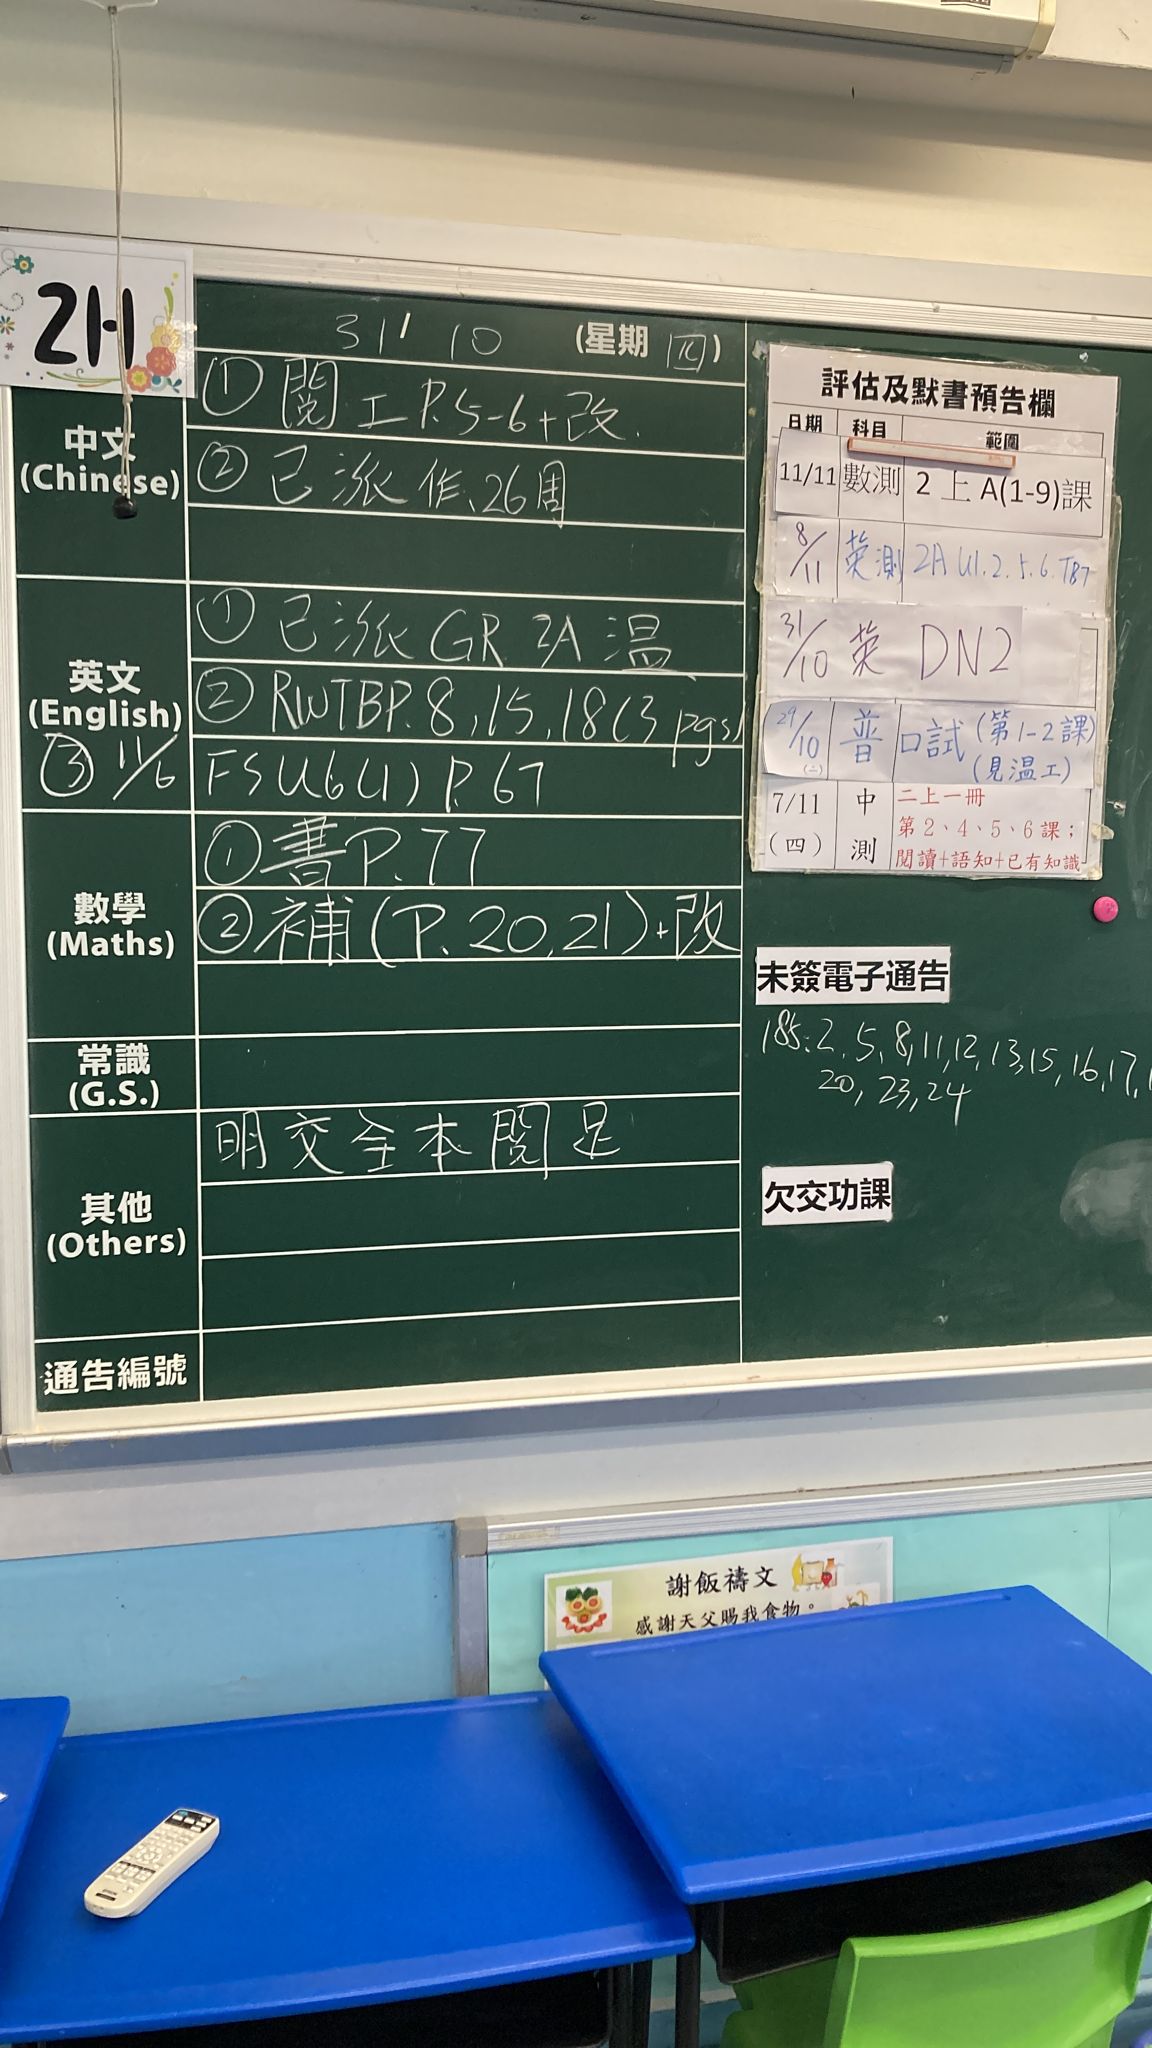 2H
31/10 (星期四)
中文
(Chinese)
① 閱工 P.5-6+改.
② 已派作、26周
英文
(English)
① 已派 GR 2A 溫
② RWTB P.8,15,18 (3 pgs)
③ 11/6 FS U6(1) P.67
數學
(Maths)
① 書 P.77
② 補(P.20,21)+改
常識
(G.S.)
其他
(Others)
明交全本閱足
通告編號
評估及默書預告欄
日期 科目 範圍
11/11 數測 2上A(1-9)課
8/11 英測 2A U1.2.5.6.TB7
31/10 英 DN2
29/10 (二) 普 口試(第1-2課)
(見溫工)
7/11 (四) 中測 二上一冊
第2、4、5、6課；
閱讀+語知+已有知識
未簽電子通告
185:2,5,8,11,12,13,15,16,17,
20,23,24
欠交功課
謝飯禱文
感謝天父賜我食物。